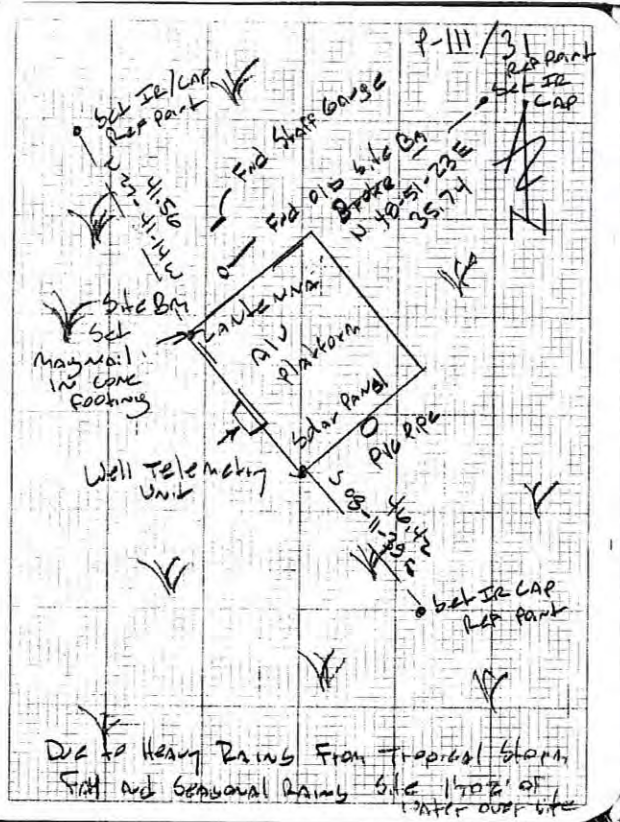 P-111/31
Ref Point
Set IR
CAP
Set IR/CAP
Ref point
Fnd Staff Gauge
Fnd old Site BM
Broke
N 48-51-23 E
35.74
41.56
N 27-41-14 W
Site BM
Set
Magnail
IN CONC
Footing
Antenna
Alu
Platform
Solar Panel
PVC Pipe
Well Telemetry
Unit
S 08-11-39 E
46.42
Set IR CAP
Ref Point
Due to Heavy Rains From Tropical Storm
Fay and Seasonal Rains Site 1' to 2' of
water over site